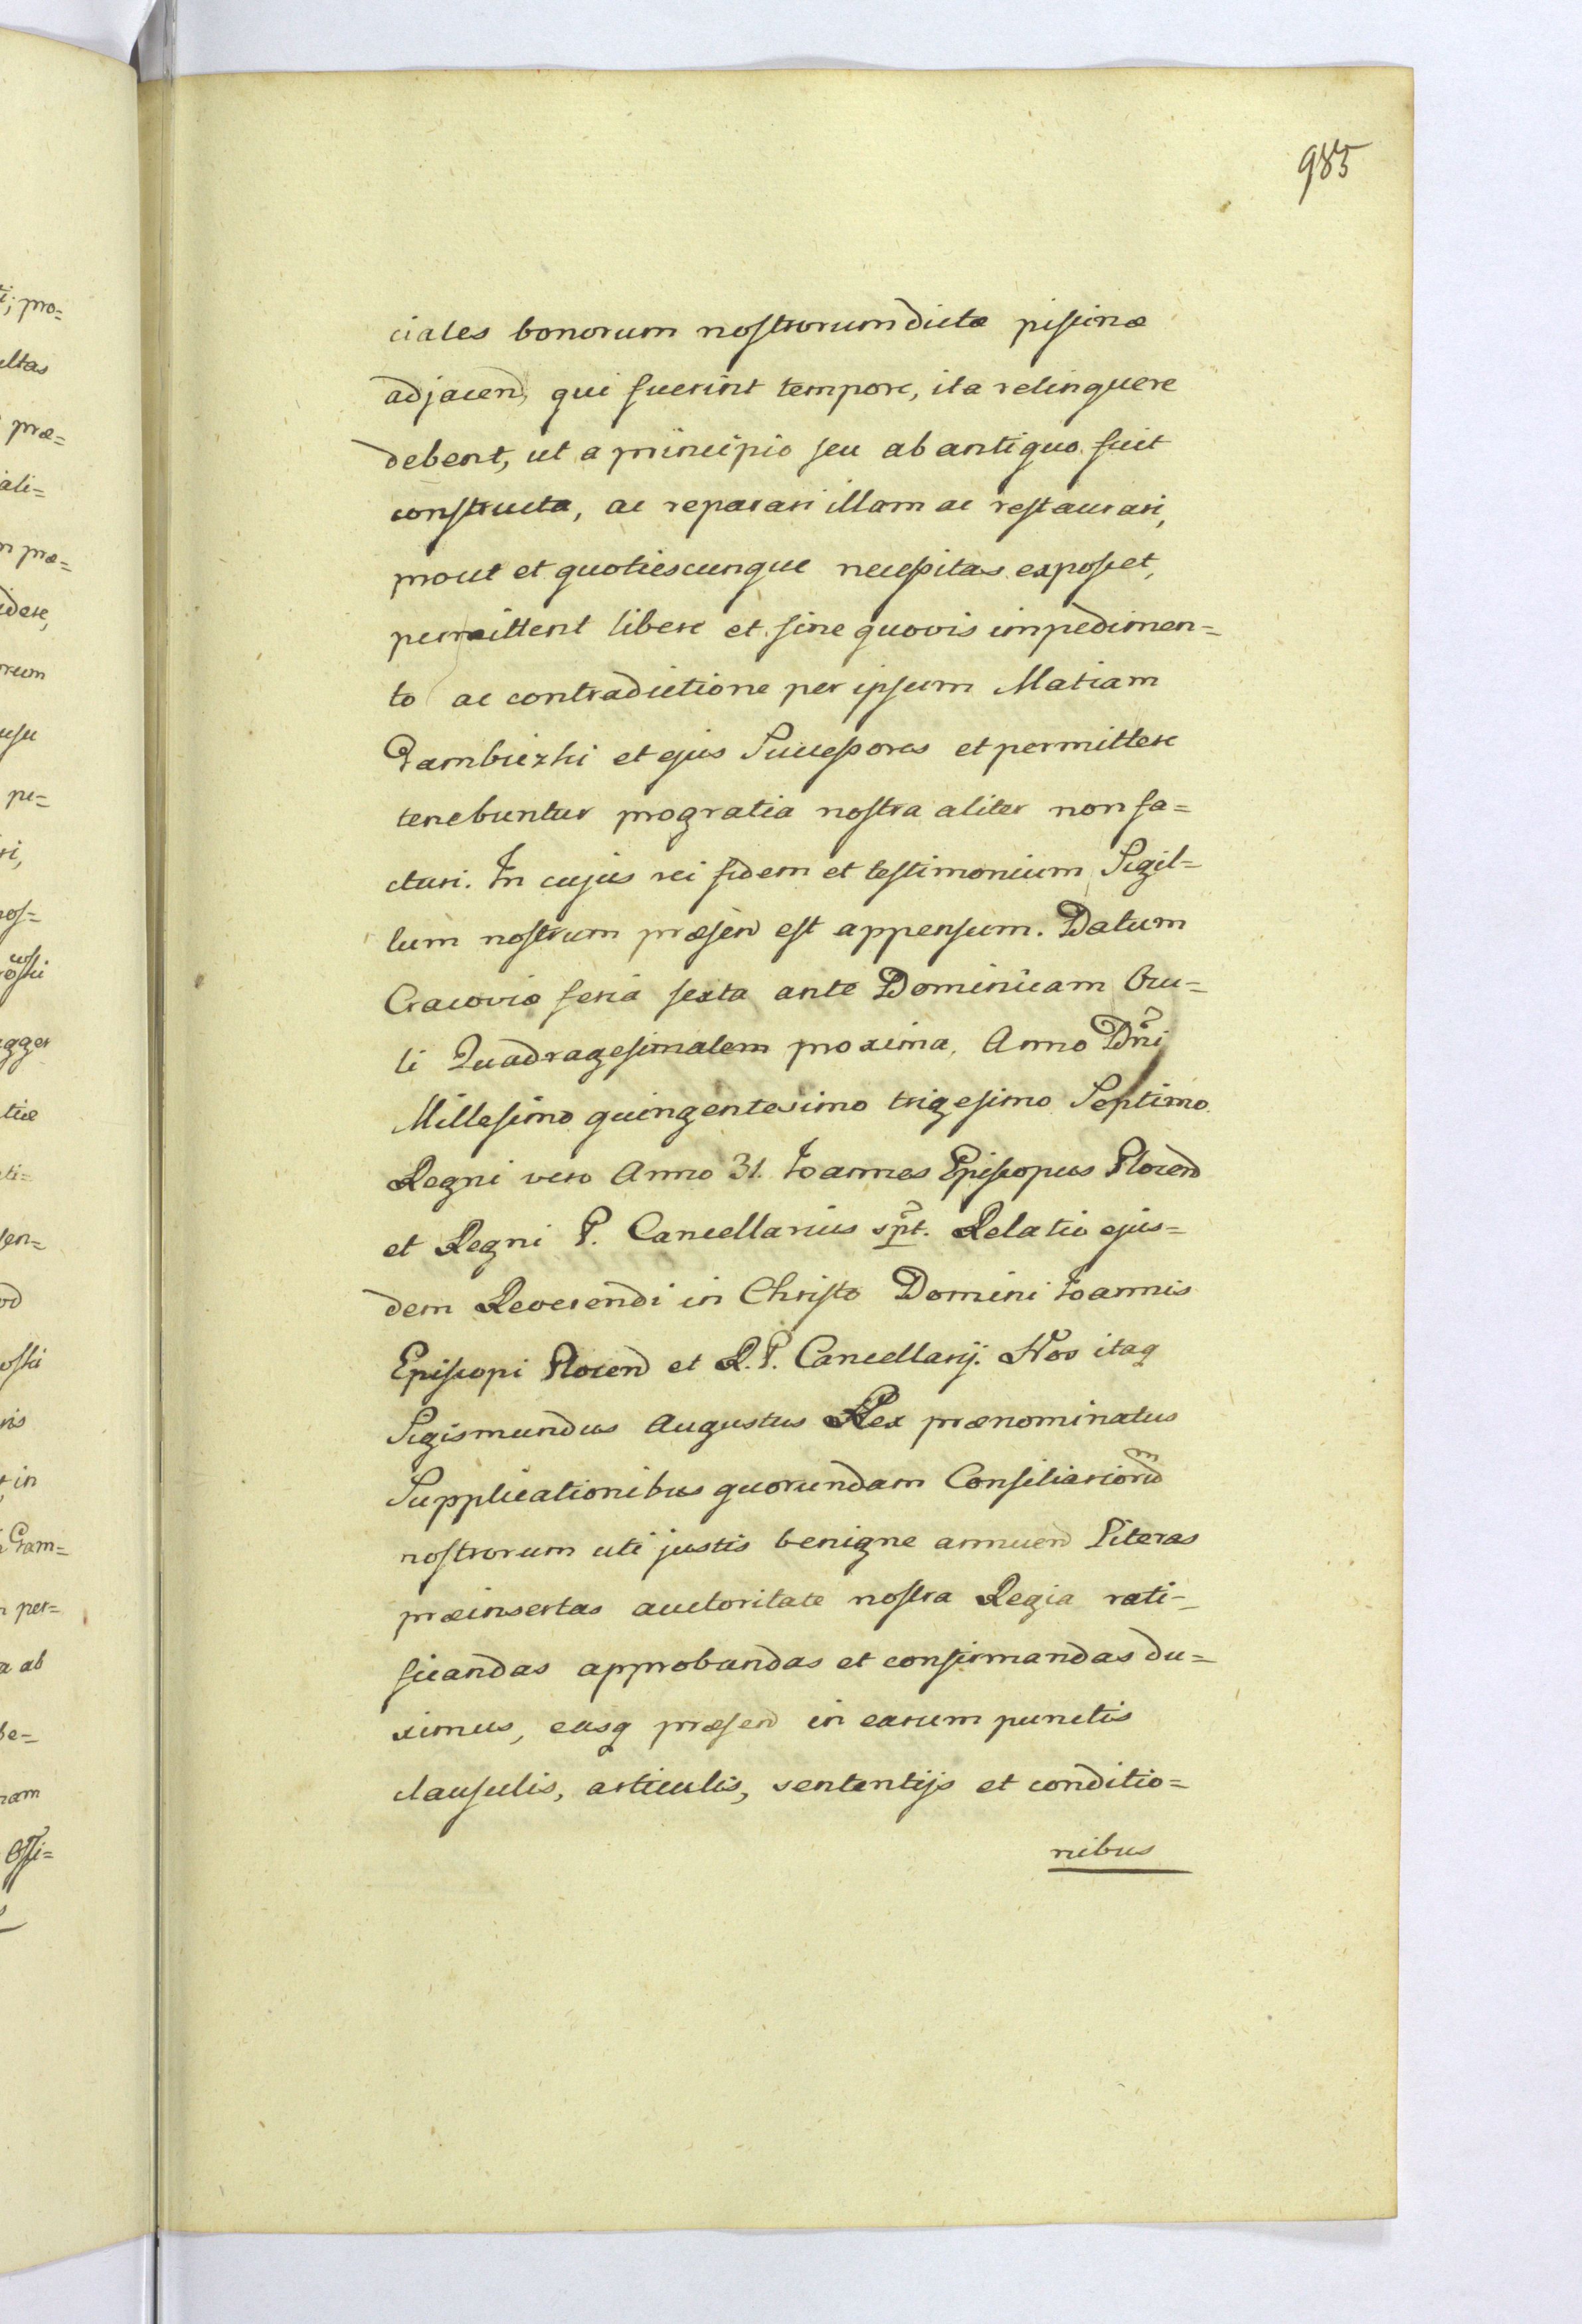 985
ciales bonorum nostrorum dictæ piscinæ
adjacen, qui fuerint tempore, ita relinquere
debent, ut a principio seu ab antiquo fuit
constructa, ac reparari illam ac restaurari,
prout et quotiescunque necessitas exposcet,
permittent libere et sine quovis impedimen=
to ac contradictione per ipsum Matiam
et ejus Successores et permittere
tenebuntur pro gratia nostra aliter non fa=
cturi. In cujus rei fidem et testimonium Sigil=
lum nostrum præsen est appensum. Datum
Cracoviæ feria sexta ante Dominicam Ocu=
li Quadragesimalem proxima, Anno Dni
Millesimo quingentesimo trigesimo Septimo
Regni vero Anno 31. Joannes Episcopus Plocen
et Regni P. Cancellarius spt. Relatio ejus=
dem Reverendi in Christo Domini Joannis
Episcopi Plocen et R. P. Cancellarij. Nos itaq
Sigismundus Augustus Rex prænominatus
Supplicationibus quorundam Consiliariorum
nostrorum uti justis benigne annuen Literas
præinsertas auctoritate nostra Regia rati=
ficandas approbandas et confirmandas du=
ximus, easq præsen in earum punctis
clausulis, articulis, sententijs et conditio=
nibus
ti; pro=
ultas
præ=
ali=
præ=
idere,
orum
usu
pe=
ri,
nos=
tiæ
ti=
sen=
ris
in
Gam=
per=
a ab
be=
nam
Offi=